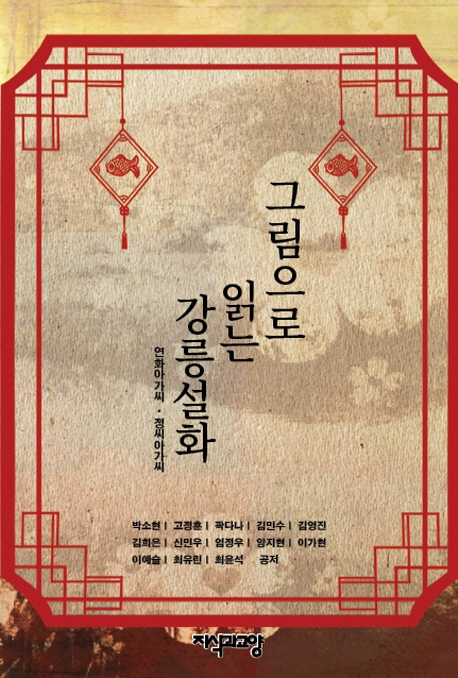 그림으로
읽는
강릉설화
연화아가씨 · 정씨아가씨
박소현 | 고정훈 | 곽다나 | 김민수 | 김영진
김희은 | 신민우 | 엄정우 | 양지현 | 이가현
이예슬 | 최유린 | 최윤석 공저
지식과교양